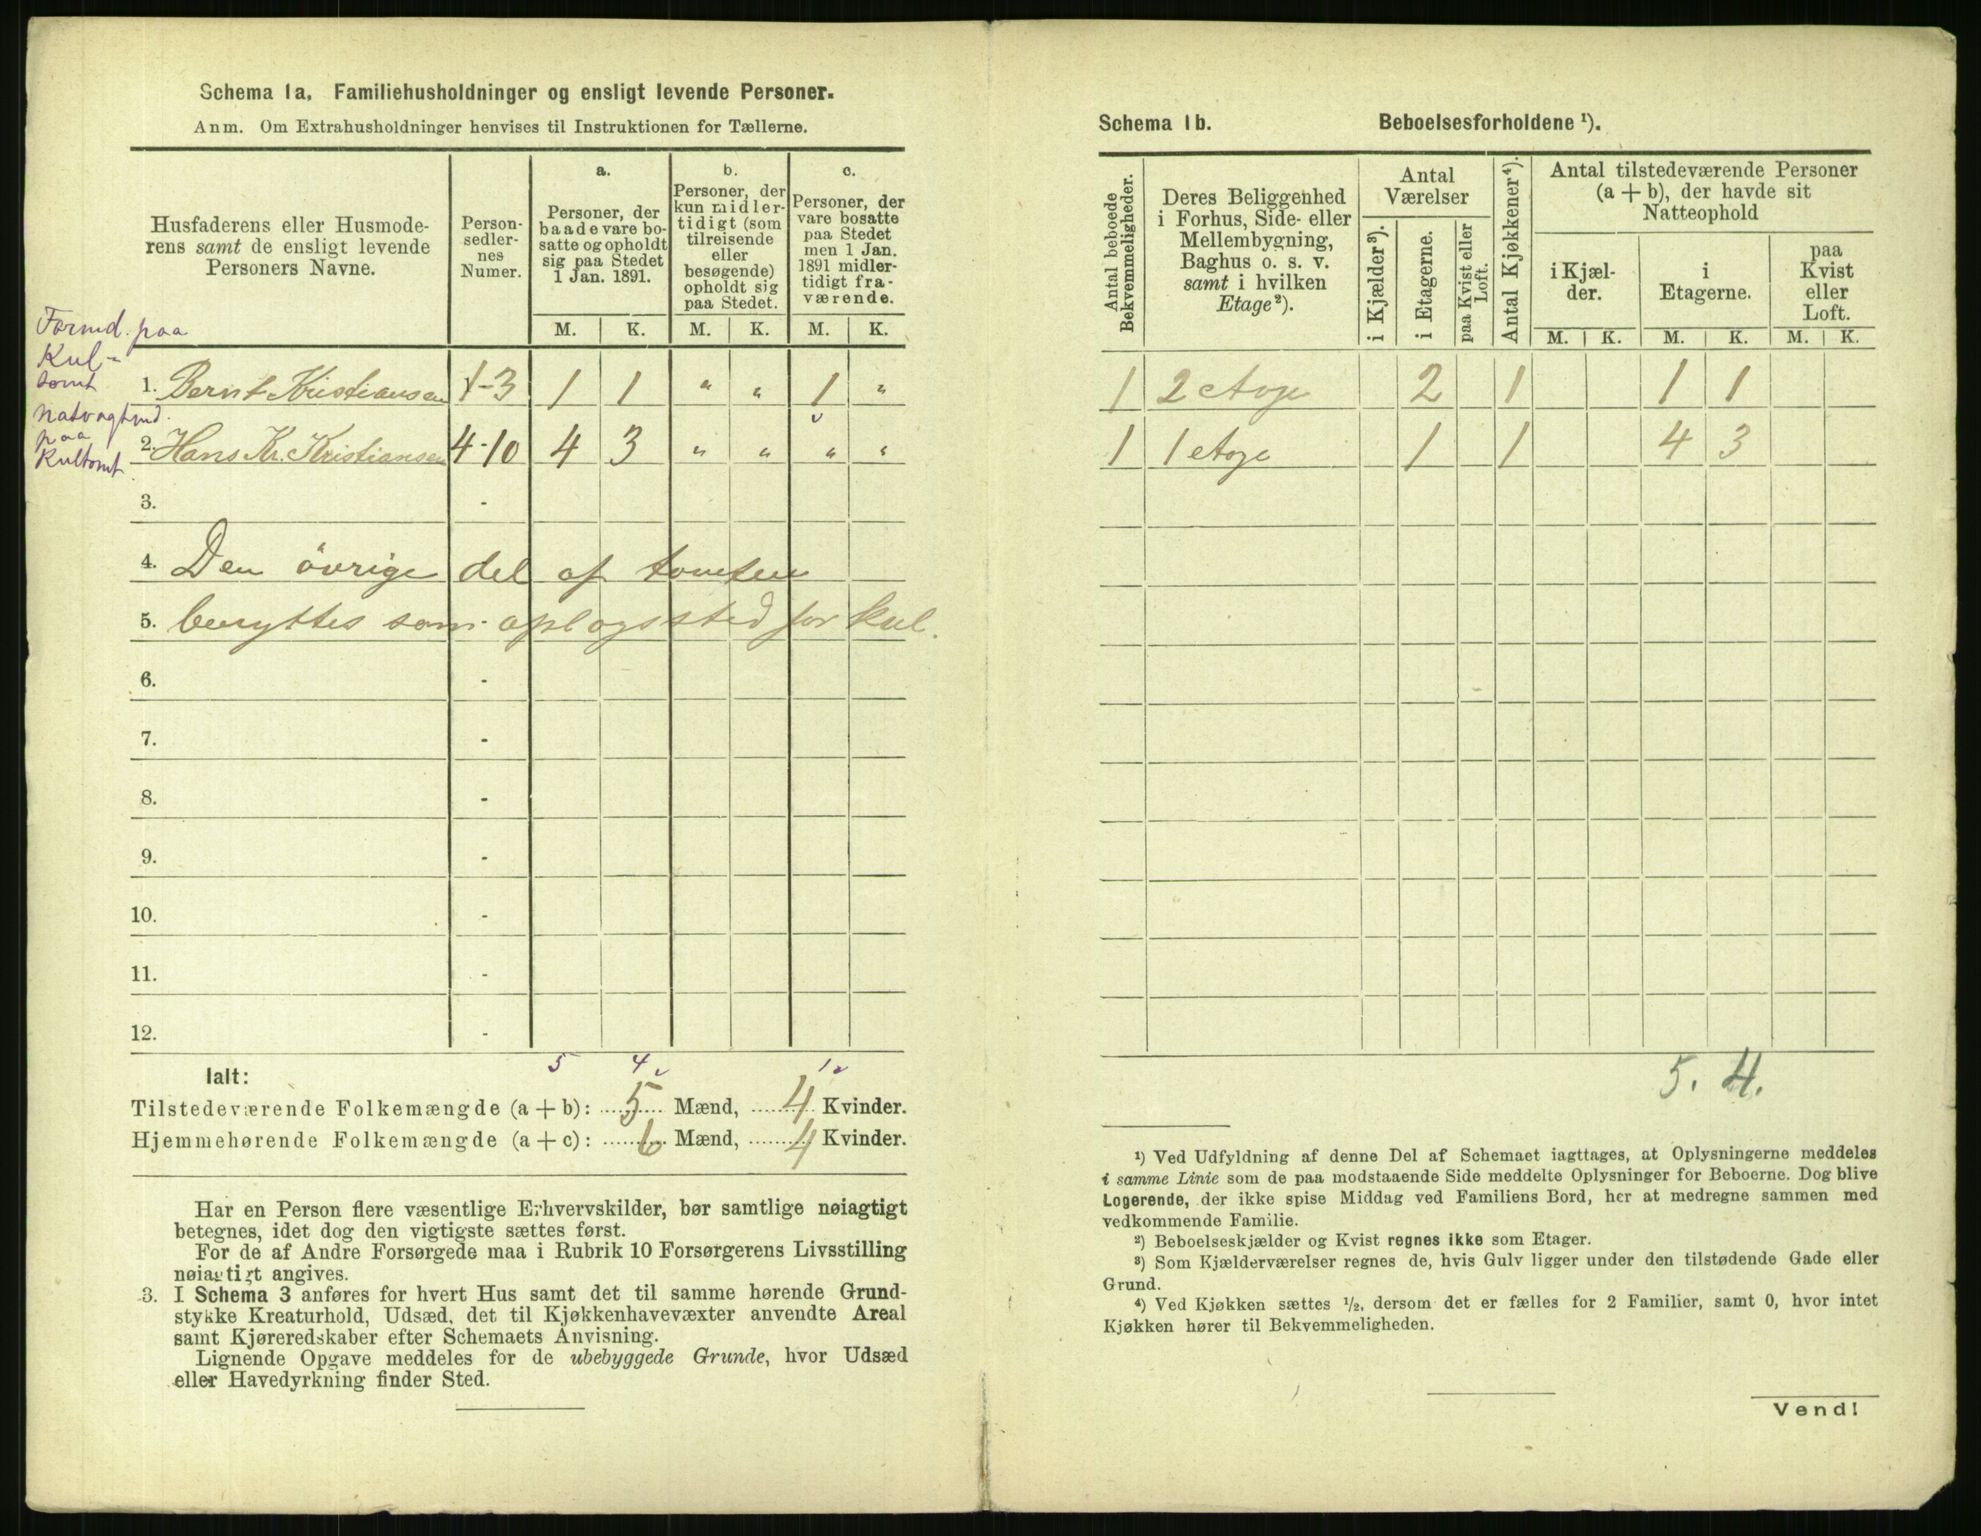 Schema 1a. Familiehusholdninger og ensligt levende Personer.
Anm. Om Extrahusholdninger henvises til Instruktionen for Tællerne.
Husfaderens eller Husmode-
rens samt de ensligt levende
Personers Navne.
Person-
sedler-
nes
Numer.
a.
Personer, der
baade vare bo-
satte og opholdt
sig paa Stedet
1 Jan. 1891.
b.
Personer, der
kun midler-
tidigt (som
tilreisende
eller
besøgende)
opholdt sig
paa Stedet.
c.
Personer, der
vare bosatte
paa Stedet
men 1 Jan.
1891 midler-
tidigt fra-
værende.
M. K. M. K. M. K.
Formd. paa
Kul-
tomt
1. Bernt Kristiansen 1-3 1 1 " " 1 "
Natvagtmd.
paa
Kultomt
2. Hans Kr. Kristiansen 4-10 4 3 " " " "
3. -
4. Den övrige del af tomten
5. benyttes som oplagssted for kul.
6. -
7. -
8. -
9. -
10. -
11. -
12. -
5 4 1
Ialt:
Tilstedeværende Folkemængde (a + b): 5 Mænd, 4 Kvinder.
Hjemmehørende Folkemængde (a + c): 6 Mænd, 4 Kvinder.
Har en Person flere væsentlige Erhvervskilder, bør samtlige nøiagtigt
betegnes, idet dog den vigtigste sættes først.
For de af Andre Forsørgede maa i Rubrik 10 Forsørgerens Livsstilling
nøiagtigt angives.
3. I Schema 3 anføres for hvert Hus samt det til samme hørende Grund-
stykke Kreaturhold, Udsæd, det til Kjøkkenhavevæxter anvendte Areal
samt Kjøreredskaber efter Schemaets Anvisning.
Lignende Opgave meddeles for de ubebyggede Grunde, hvor Udsæd
eller Havedyrkning finder Sted.
Schema 1b. Beboelsesforholdene ¹).
Antal beboede
Bekvemmeligheder.
Deres Beliggenhed
i Forhus, Side- eller
Mellembygning,
Baghus o. s. v.
samt i hvilken
Etage²).
Antal
Værelser
i Kjælder³).
i Etagerne.
paa Kvist eller
Loft.
Antal Kjøkkener⁴).
Antal tilstedeværende Personer
(a + b), der havde sit
Natteophold
i Kjæl-
der.
i
Etagerne.
paa
Kvist
eller
Loft.
M. K. M. K. M. K.
1 2 etage 2 1 1 1
1 1 etage 1 1 4 3
5. 4.
¹) Ved Udfyldning af denne Del af Schemaet iagttages, at Oplysningerne meddeles
i samme Linie som de paa modstaaende Side meddelte Oplysninger for Beboerne. Dog blive
Logerende, der ikke spise Middag ved Familiens Bord, her at medregne sammen med
vedkommende Familie.
²) Beboelseskjælder og Kvist regnes ikke som Etager.
³) Som Kjælderværelser regnes de, hvis Gulv ligger under den tilstødende Gade eller
Grund.
⁴) Ved Kjøkken sættes ½, dersom det er fælles for 2 Familier, samt 0, hvor intet
Kjøkken hører til Bekvemmeligheden.
Vend!